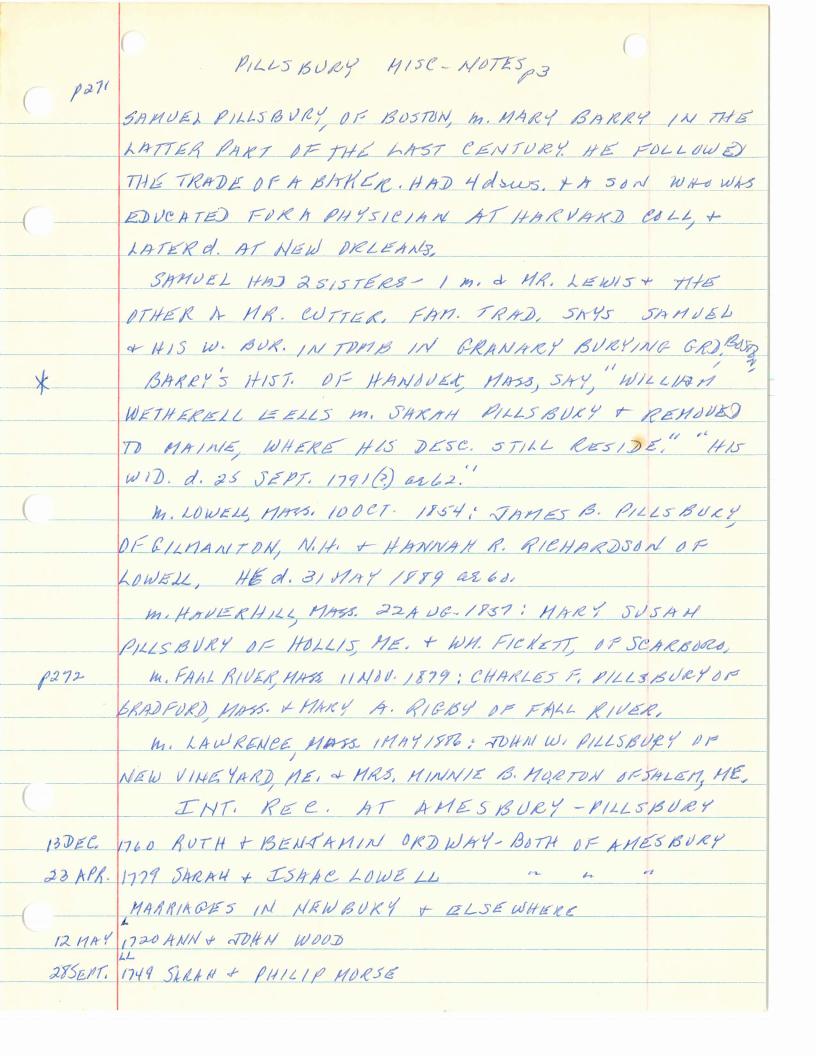 PILLSBURY MISC-NOTES p3
p271
SAMUEL PILLSBURY, OF BOSTON, m. MARY BARRY IN THE
LATTER PART OF THE LAST CENTURY. HE FOLLOWED
THE TRADE OF A BAKER. HAD 4 daus. + A SON WHO WAS
EDUCATED FOR A PHYSICIAN AT HARVARD COLL, +
LATER d. AT NEW ORLEANS.
SAMUEL HAD 2 SISTERS - 1 m. a MR. LEWIS + THE
OTHER A MR. CUTTER. FAM. TRAD. SAYS SAMUEL
+ HIS W. BUR. IN TOMB IN GRANARY BURYING GRD, BOSTON,
* BARRY'S HIST. OF HANOVER, MASS, SAY, "WILLIAM
WETHERELL EELLS m. SARAH PILLSBURY + REMOVED
TO MAINE, WHERE HIS DESC. STILL RESIDE." "HIS
WID. d. 25 SEPT. 1791(?) ae 62."
m. LOWELL, MASS. 10 OCT. 1854: JAMES B. PILLSBURY,
OF GILMANTON, N.H. + HANNAH R. RICHARDSON OF
LOWELL, HE d. 31 MAY 1889 ae 60.
m. HAVERHILL, MASS. 22 AUG. 1857: MARY SUSAN
PILLSBURY OF HOLLIS, ME. + WM. FICKETT, OF SCARBORO,
p272 m. FALL RIVER, MASS 11 NOV. 1879: CHARLES F. PILLSBURY OF
BRADFORD, MASS. + MARY A. RIGBY OF FALL RIVER.
m. LAWRENCE, MASS 1 MAY 1886: JOHN W. PILLSBURY OF
NEW VINEYARD, ME. + MRS. MINNIE B. MORTON OF SALEM, ME.
INT. REC. AT AMESBURY - PILLSBURY
13 DEC. 1760 RUTH + BENJAMIN ORDWAY - BOTH OF AMESBURY
23 APR. 1779 SARAH + ISAAC LOWELL " " "
MARRIAGES IN NEWBURY + ELSEWHERE
12 MAY 1720 ANN + JOHN WOOD
28 SEPT. 1749 SARAH + PHILIP MORSE